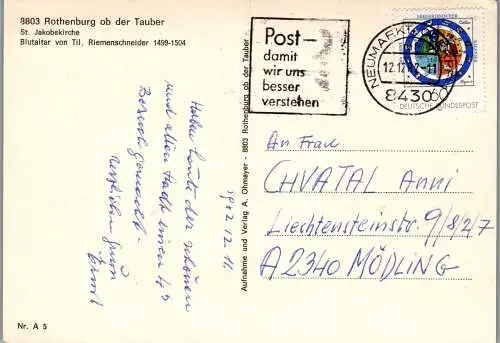 8803 Rothenburg ob der Tauber
St. Jakobskirche
Blutaltar von Til. Riemenschneider 1499-1504
Habe heute der schönen
und alten Stadt einen
Besuch gemacht.
Ernst
1982 12 11
Nr. A 5
Aufnahme und Verlag A. Ohmayer - 8803 Rothenburg ob der Tauber
Post-
damit
wir uns
besser
verstehen
NEUMARKT
12.12.82-11
8430
60
DEUTSCHE BUNDESPOST
An Frau
CHVATAL Anni
Liechtensteinstr. 9/8/2/7
A 2340 MÖDLING